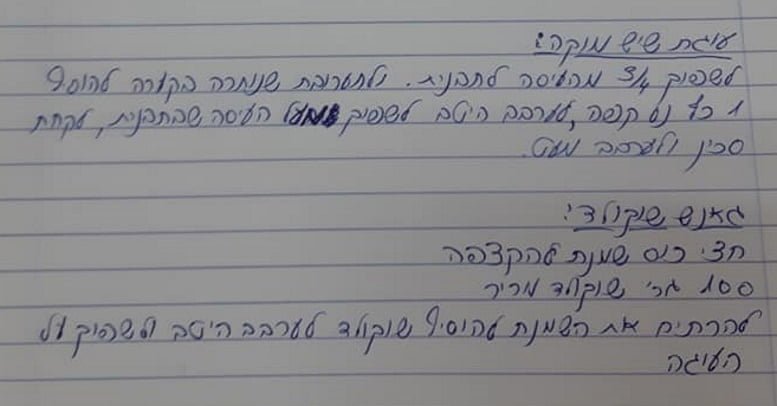 עוגת שיש מוקה:
לשפוך 3/4 מהעיסה לתבנית. ולתערובת שנותרה בקערה להוסיף
1 כף נס קפה, לערבב היטב לשפוך מעל העיסה שבתבנית, לקחת
סכין ולערבב מעט.
גאנש שוקולד:
חצי כוס שמנת להקצפה
100 גר' שוקולד מריר
להרתיח את השמנת להוסיף שוקולד לערבב היטב ולשפוך על
העוגה